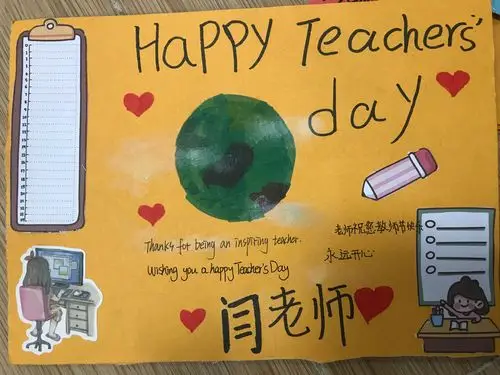 HAPPY Teachers'
day
Thanks for being an inspiring teacher.
Wishing you a happy Teacher's Day
老师祝您教师节快乐
永远开心
闫老师